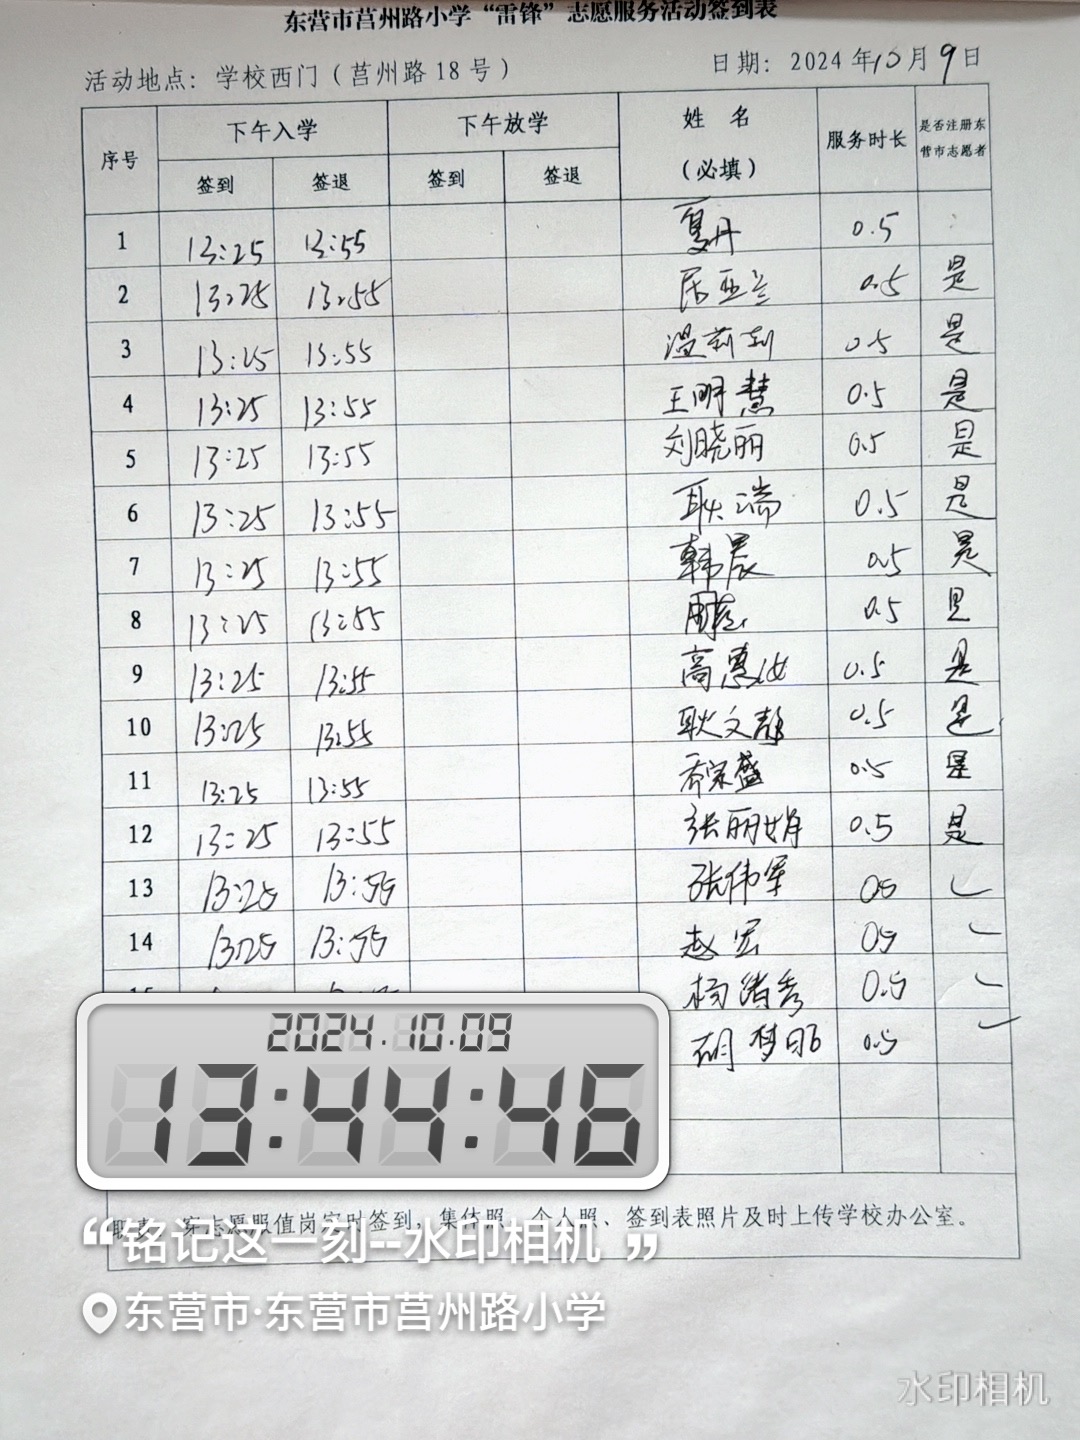 东营市莒州路小学“雷锋”志愿服务活动签到表
活动地点：学校西门（莒州路18号） 日期：2024年10月9日
序号 下午入学 下午放学 姓名（必填） 服务时长 是否注册东营市志愿者
签到 签退 签到 签退
1 13:25 13:55 夏丹 0.5
2 13:25 13:55 0.5 是
3 13:25 13:55 温莉莉 0.5 是
4 13:25 13:55 王明慧 0.5 是
5 13:25 13:55 刘晓丽 0.5 是
6 13:25 13:55 耿瑞 0.5 是
7 13:25 13:55 韩晨 0.5 是
8 13:25 13:55 0.5 是
9 13:25 13:55 高惠 0.5 是
10 13:25 13:55 耿文静 0.5 是
11 13:25 13:55 乔宗盛 0.5 是
12 13:25 13:55 张丽娟 0.5 是
13 13:25 13:55 张伟军 05 ✓
14 13:25 13:55 赵宏 05 ✓
杨绪秀 0.5 ✓
胡梦 0.5 ✓
2024.10.09
13:44:46
穿志愿服值岗实时签到，集体照、个人照、签到表照片及时上传学校办公室。
“铭记这一刻--水印相机”
东营市·东营市莒州路小学
水印相机